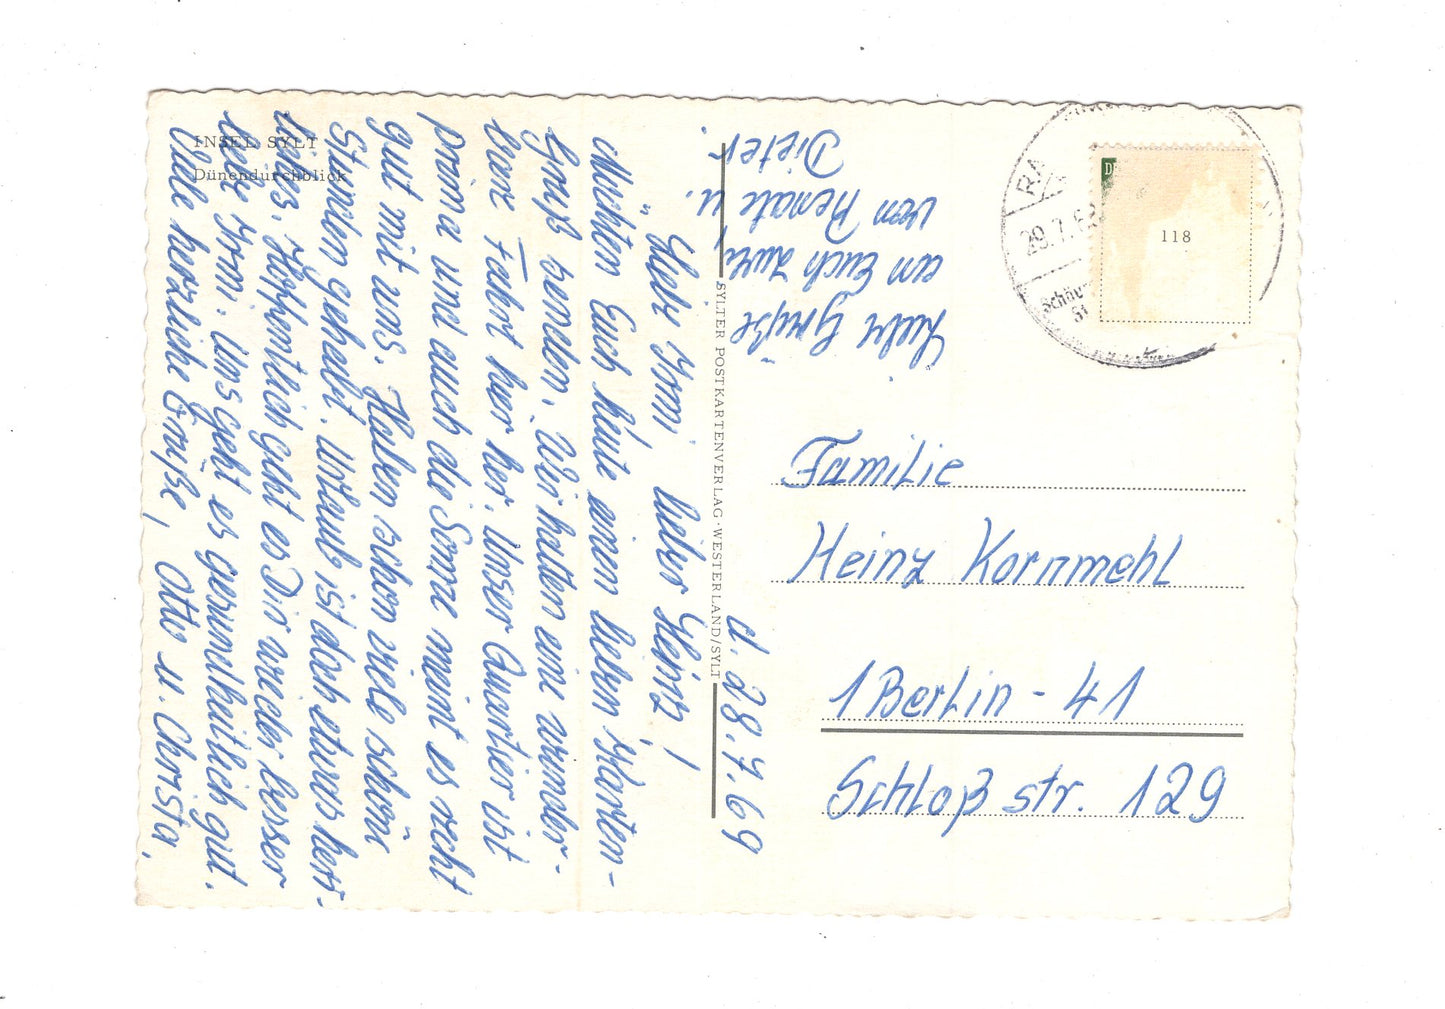 INSEL SYLT
Dünendurchblick
d. 28.7.69
Liebe Irmi, lieber Heinz!
Möchten Euch heute einen lieben Karten-
gruß senden. Wir hatten eine wunder-
bare Fahrt hier her. Unser Quartier ist
prima und auch die Sonne meint es recht
gut mit uns. Haben schon viele schöne
Stunden gehabt. Urlaub ist doch etwas herr-
liches. Hoffentlich geht es Dir wieder besser
liebe Irmi. Uns geht es gesundheitlich gut.
Viele herzliche Grüße, Otto u. Christa.
Liebe Grüße
an Euch zwei,
von Renate u.
Dieter.
SYLTER POSTKARTENVERLAG · WESTERLAND/SYLT
RA
29.7.6
D
118
Familie
Heinz Kornmehl
1 Berlin - 41
Schloß str. 129